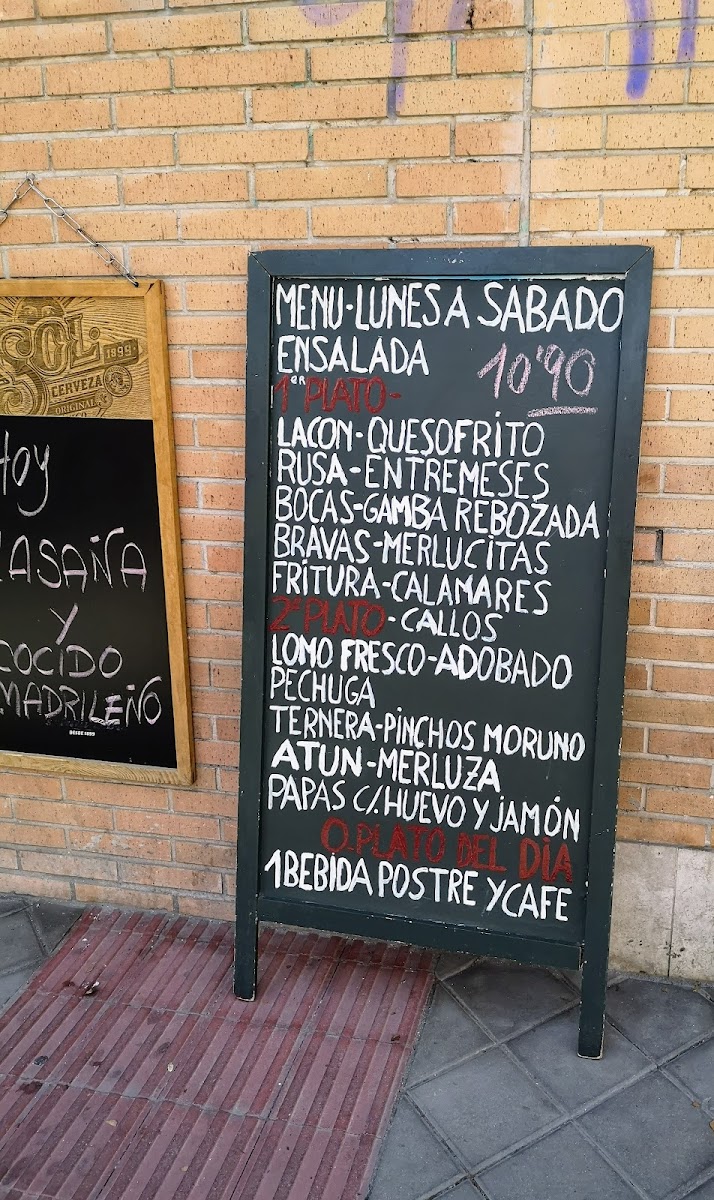 SOL
1899
CERVEZA
ORIGINAL
Hoy
LASAÑA
Y
COCIDO
MADRILEÑO
DESDE 1899
MENU-LUNES A SABADO
ENSALADA
10'90
1er PLATO-
LACON-QUESOFRITO
RUSA-ENTREMESES
BOCAS-GAMBA REBOZADA
BRAVAS-MERLUCITAS
FRITURA-CALAMARES
2º PLATO-CALLOS
LOMO FRESCO-ADOBADO
PECHUGA
TERNERA-PINCHOS MORUNO
ATUN-MERLUZA
PAPAS C/.HUEVO Y JAMÓN
O.PLATO DEL DÍA
1BEBIDA POSTRE Y CAFE